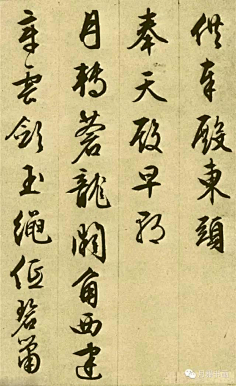 供殿東頭
奉天殿早朝
月轉蒼龍闕角西建
章雲斂玉繩低碧簫